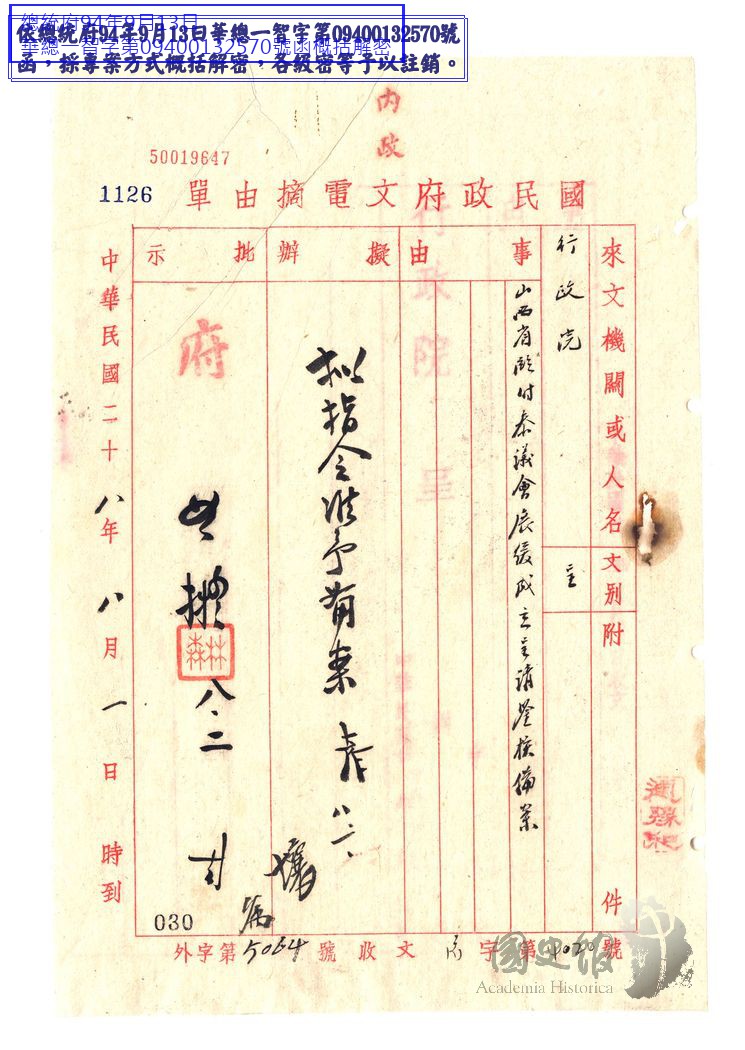 總統府94年9月13日
華總一智字第09400132570號函概括解密
依總統府94年9月13日華總一智字第09400132570號
函，採專案方式概括解密，各級密等予以註銷。
內政
50019647
1126
國民政府文電摘由單
來文機關或人名
行政院
文別
呈
附件
事由
山西省臨時參議會展緩成立呈請鑒核備案
擬辦
擬指令准予備案
八.一.
批示
府
林森
八.二
中華民國二十八年八月一日時到
行政院呈
030
外字第5064號收文字第號
國史館
Academia Historica